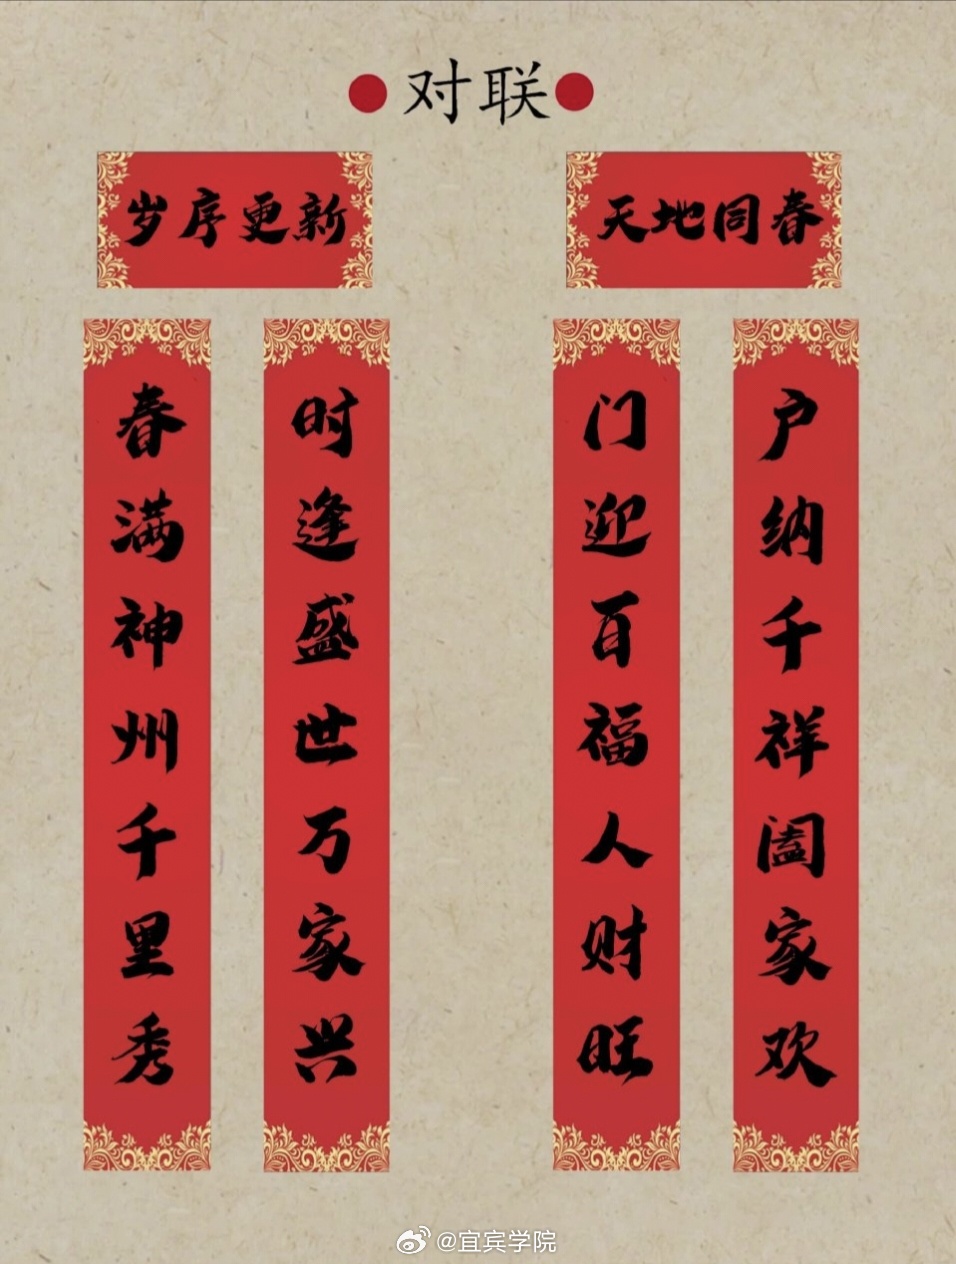 对联
岁序更新
春满神州千里秀
时逢盛世万家兴
天地同春
门迎百福人财旺
户纳千祥阖家欢
@宜宾学院